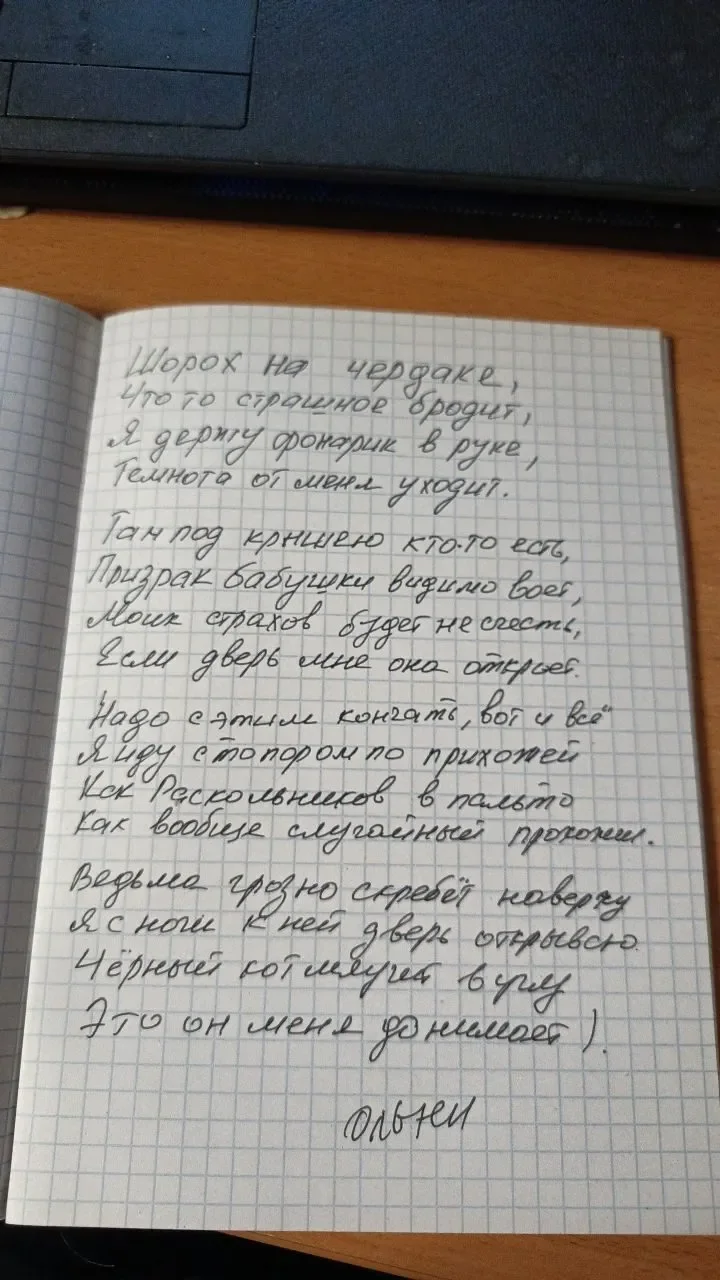 Шорох на чердаке,
Что то страшное бродит,
Я держу фонарик в руке,
Темнота от меня уходит.
Там под крышею кто-то есть,
Призрак бабушки видимо воет,
Моих страхов будет не счесть,
Если дверь мне она откроет.
Надо с этим кончать, вот и всё
Я иду с топором по прихожей
Как Раскольников в пальто
Как вообще случайный прохожий.
Ведьма грозно скребёт наверху
Я с ноги к ней дверь открываю.
Чёрный кот мяучит в углу
Это он меня донимает).